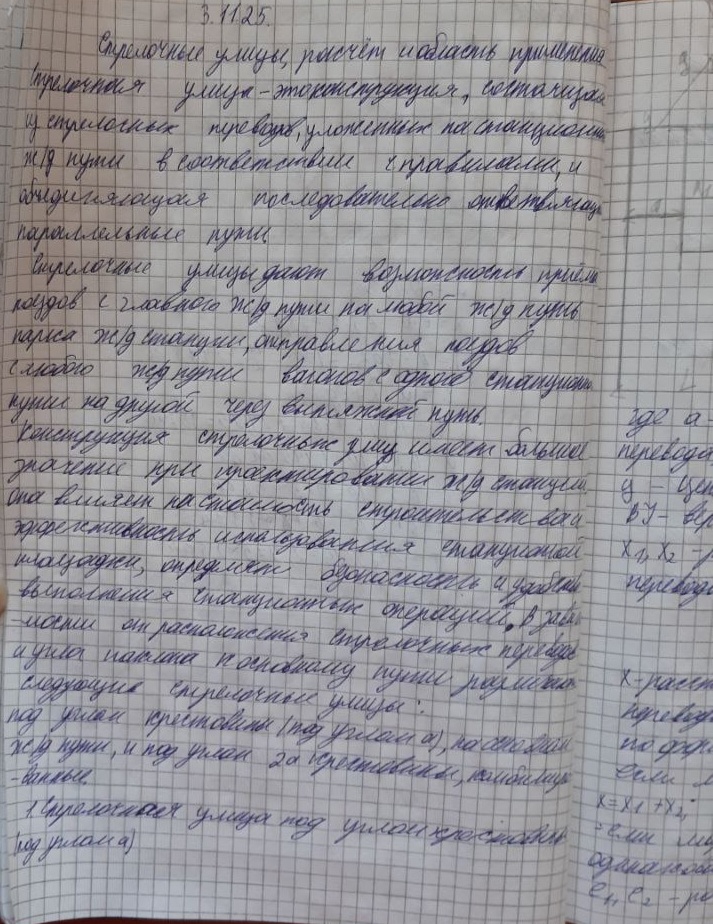 3.11.25.
Стрелочные улицы, расчёт и область применения
Стрелочная улица - это конструкция, состоящая
из стрелочных переводов, уложенных на станционн
ж/д пути в соответствии с правилами, и
объединяющая последовательно ответвляющ
параллельные пути.
Стрелочные улицы дают возможность приёма
поездов с главного ж/д пути на любой ж/д путь
парка ж/д станции, отправления поездов
с любого ж/д пути вагонов с одного станционн
пути на другой через вытяжной путь.
Конструкция стрелочных улиц имеет большое
значение при проектировании ж/д станции
она влияет на стоимость строительства и
эффективность использования станционной
площадки, определяет безопасность и удобство
выполнения станционных операций. В зави
-мости от расположения стрелочных переводов
и угла наклона к основному пути различают
следующие стрелочные улицы:
под углом крестовины (под углом а), на основном
ж/д пути, и под углом 2а крестовины, комбиниро
-ванные.
1. Стрелочная улица под углом крестовины
(под углом а)
где а -
перевода
у - цен
ВУ - вер
X1, X2 - р
перевод
х - расст
перевод
по форм
если м
X = X1 + X2;
- если му
одинаков
e1, e2 - ра